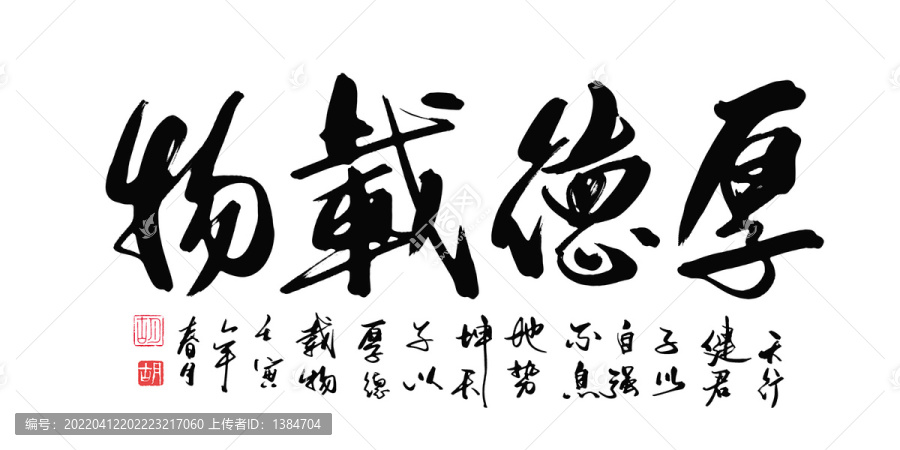 厚德載物
天行
健君
子以
自强
不息
地势
坤君
子以
厚德
載物
壬寅
年
春月
胡
编号：20220412202223217060 上传者ID：1384704